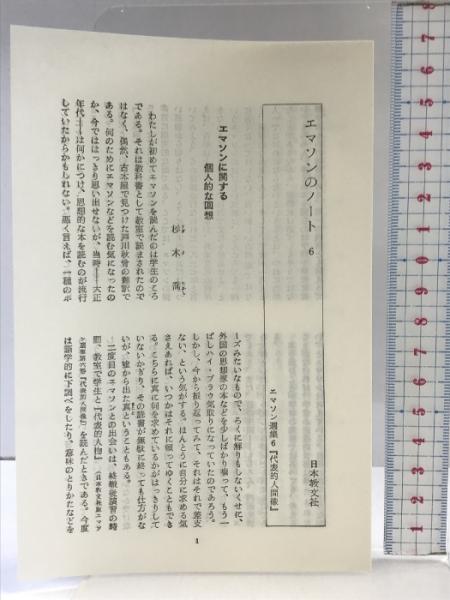 エマソンのノート 6
日本教文社
エマソン選集6『代表的人間像』
エマソンに関する
個人的な回想
杉木 喬
わたしが初めてエマソンを読んだのは学生のころ
である。それは教科書として教室で読まされたので
はなく、偶然、古本屋で見つけた戸川秋骨の翻訳で
ある。何のためにエマソンなどを読む気になったの
か、今でははっきり思い出せないが、当時――大正
年代――は何かにつけ、思想的な本を読むのが流行
していたからかもしれない。悪く言えば、一種のポ
ーズみたいなもので、ろくに解りもしないくせに、
外国の思想家の本などを少しばかり齧って、もう一
ぱしハイ・ブラウ気取りになっていたのであろう。
しかし、今から振り返ってみて、それはそれで差支
ない、という気がする。ほんとうに自分に求める気
さえあれば、いつかはそれに頼ってゆくこともでき
る。こちらに真に何を求めているかがはっきりして
いないかぎり、その読書が無駄に終っても仕方がな
いが、嘘から出た真ということもある。
二度目のエマソンとの出会いは、終戦後演習の時
間、教室で学生と『代表的人物』（日本教文社版エマソ
ン選集第六巻『代表的人間像』）を読んだときである。今度
は語学的に下調べをしたり、意味のとりかたなどを
1